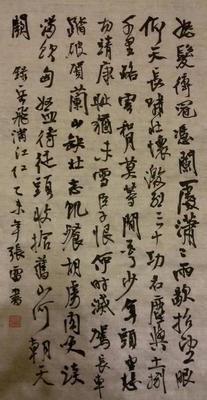 怒髮衝冠憑闌處瀟瀟雨歇抬望眼
仰天長嘯壯懷激烈三十功名塵與土
千里路雲和月莫等閒少年頭空悲
切靖康恥猶未雪臣子恨何時滅駕長車
踏破賀蘭山缺壯志飢餐胡虜肉笑談
渴飲匈奴血待從頭收拾舊山河朝天
闕 錄岳飛滿江紅 乙未年張雷書